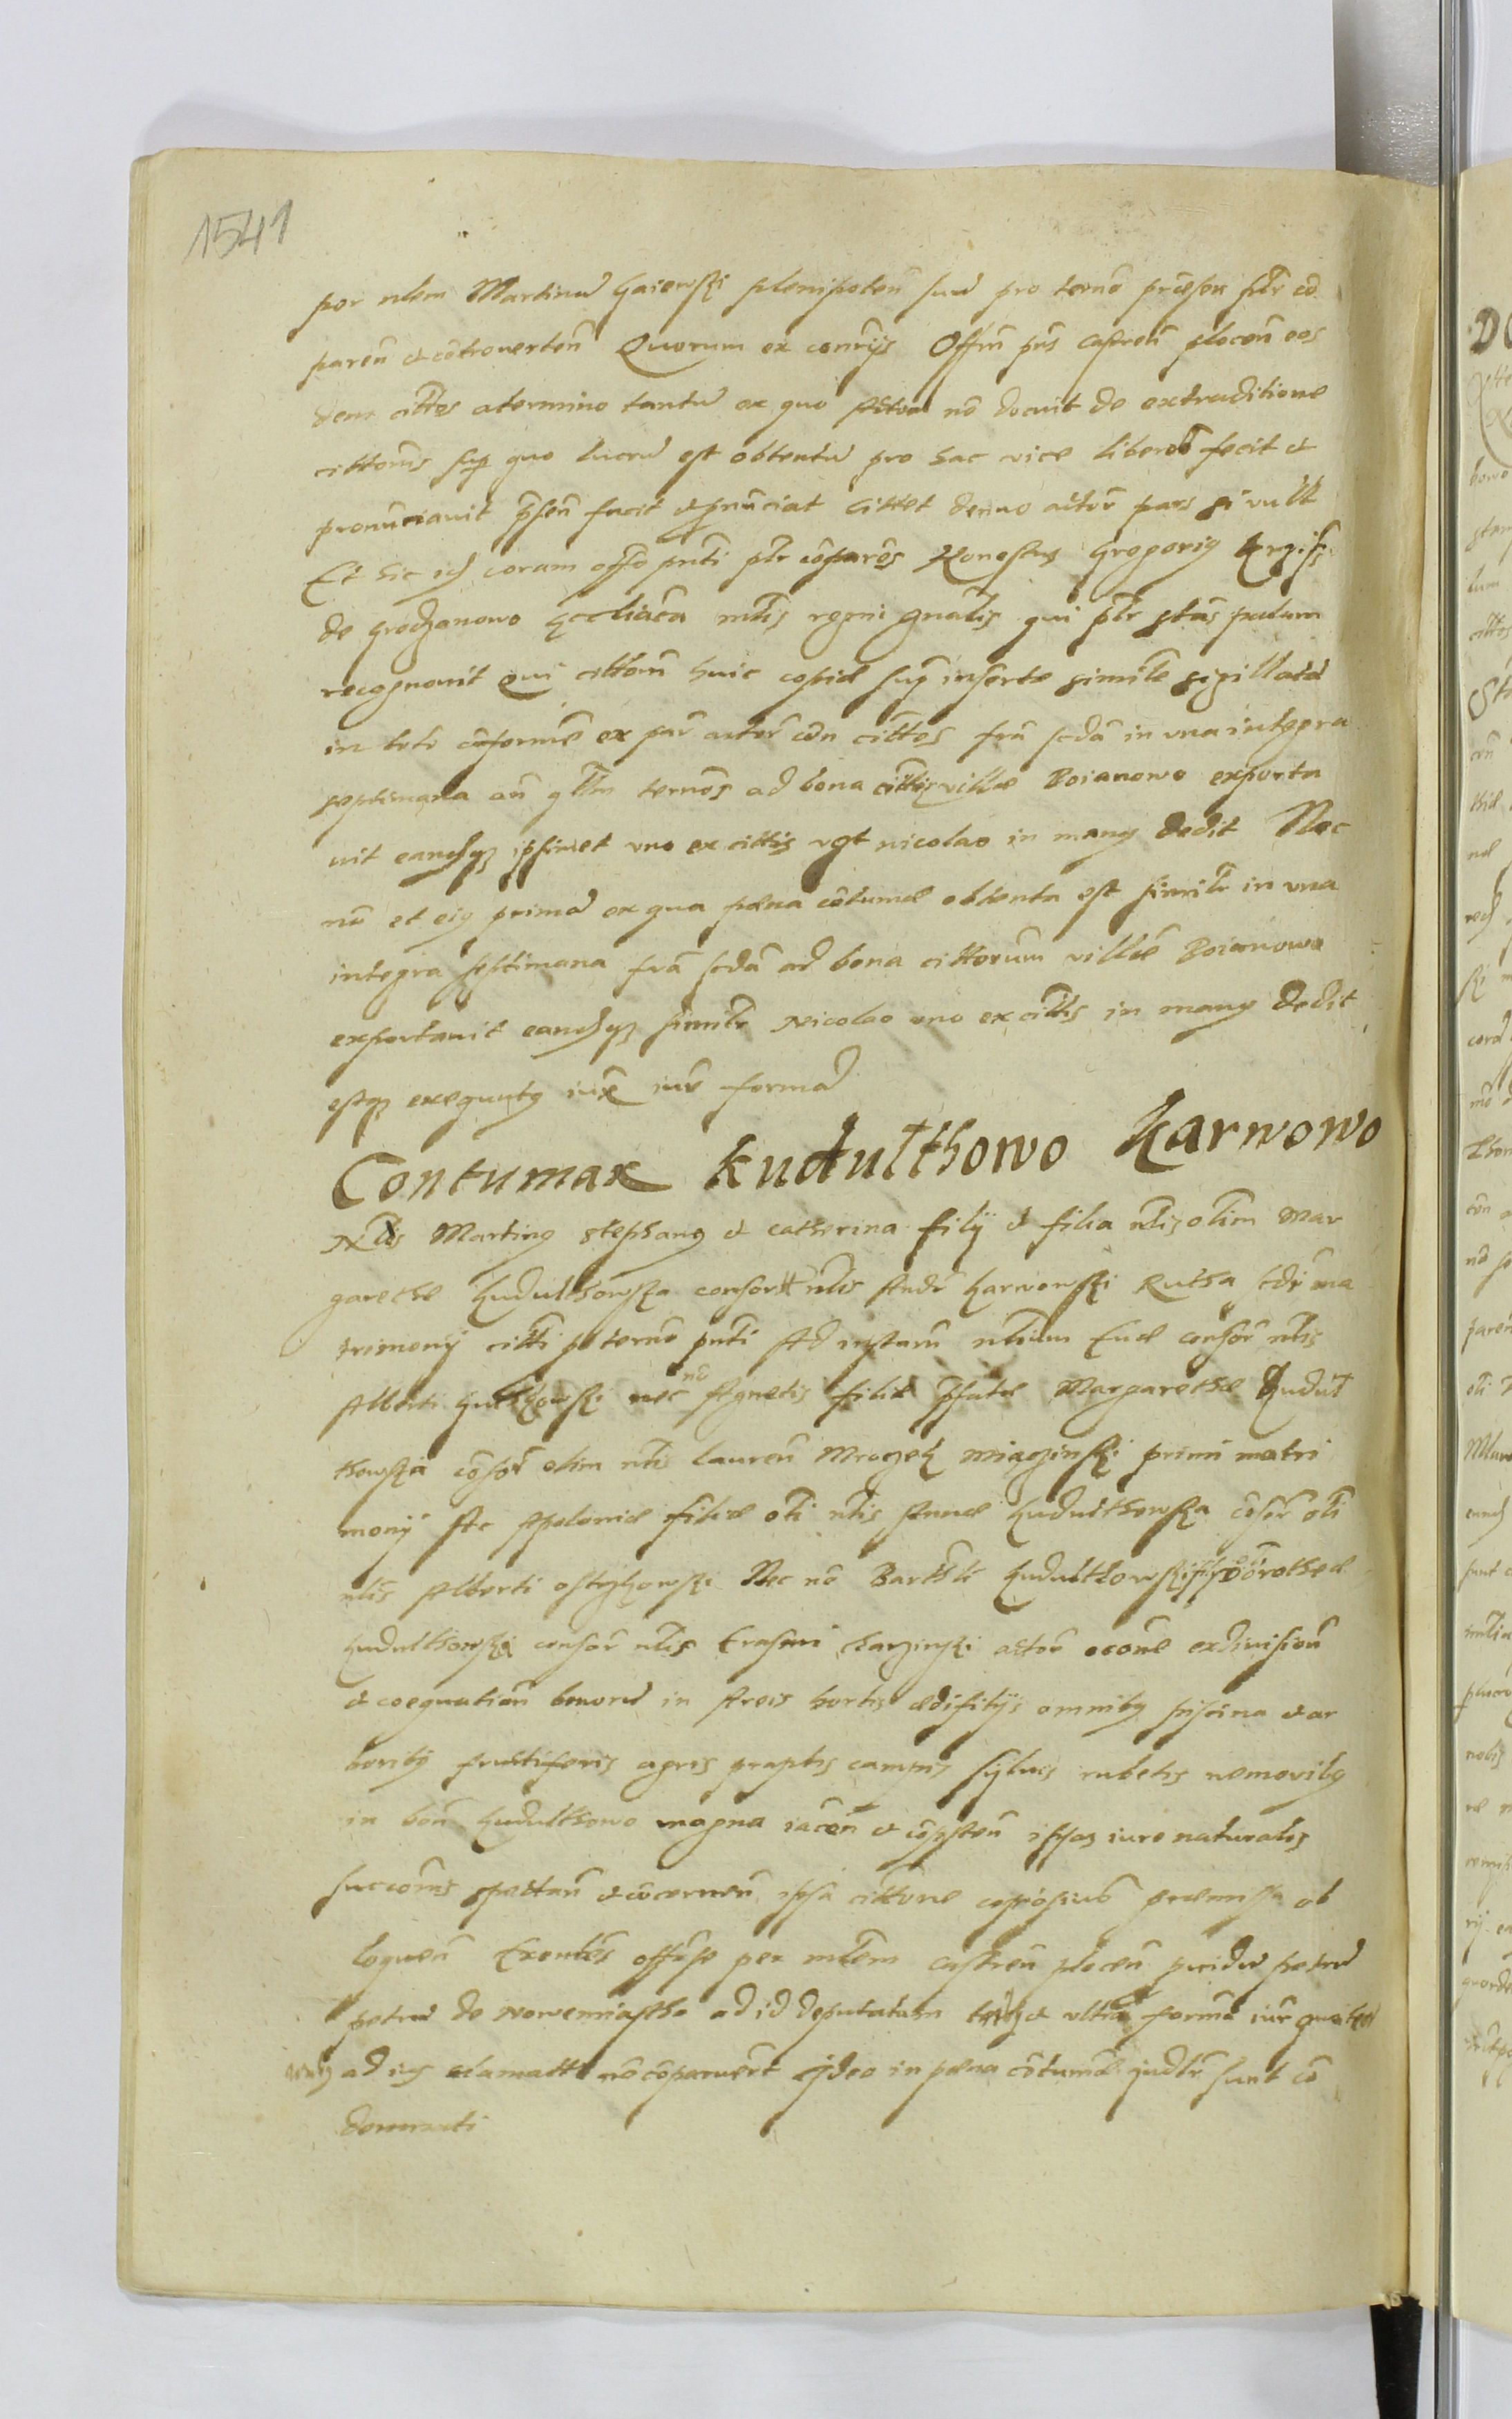 1541
per nlem Martinu Gaiewski plenipoten suu pro termo præsen ptr co
paren & controverten Quorum ex conrijs Offm pns castren plocen eos
dem cittos a termino tantu ex quo Actor no docuit de extraditione
cittonis sup quo lucru est obtentu pro hac vice liberos fecit &
pronunciavit psen facit & pnunciat Cittet denuo actor pars si vult
Et hic id coram offo pnti ptr comparens Honestus Gregorius
de Grodzanowo mlis regni gnalis qui ptr stans palam
recognovit Qui citton huic copiæ sup insertæ simile sigillata
in toto conforme ex par actor con cittos fra scda in una integra
septimana an term ad bona cittor villæ Boianowo exporta
vit eandqz ipsimet uno ex cittis vgt nicolao in manus dedit Nec
no et eius prima ex qua pæna contuma obtenta est similr in una
integra septimana fra scda ad bona cittorum villæ Boianowo
exportavit eandqz similr Nicolao uno ex cittis in manus dedit
estqz exequutus iuxe iur forma
Contumax Kudulthowo Karwowo
Nlis Martinus Stephanus & Catherina filij & filia nlis olim Mar
garethæ Kudulthowska consortt nlis Andr Karwowski Rutha scdi ma
trimonij citti p termo pnti Ad instam nlium Evæ consor nlis
Alberti nec no Agnetis filiæ pfatæ Margarethæ Kudul
thowska consor olim nli Lauren Mrozek primi matri
monij Ac Apoloniæ filiæ oli nlis Annæ Kudulthowska consor oli
nlis Alberti Nec no Barthli Kudulthowski Dorotheæ
Kudulthowska consor nlis Erasmi actor occone exdivision
& coequation bonoru in Areis hortis ædifitijs omnibus piscina & ar
boribus fructiferis agris praptis campis sylvis rubetis nemoribus
in bon Kudulthowo magna iacen & consisten ipsos iure naturalis
succonis spectan & concernen ipsa cittone copiosius præmissa ob
loquen Exentes offose per mlem castren plocen Petru
petru de Nowemiastho ad id deputatum & ultia forma iur quater
ad ius clamatt no comparuert Ideo in pæna contuma iudlr sunt con
demnati